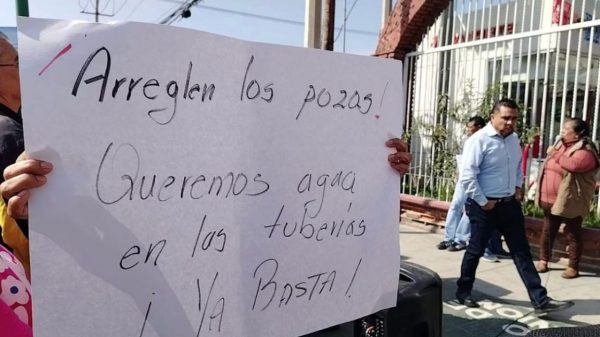 ¡Arreglen los pozos!
Queremos agua
en las tuberías
¡YA BASTA!